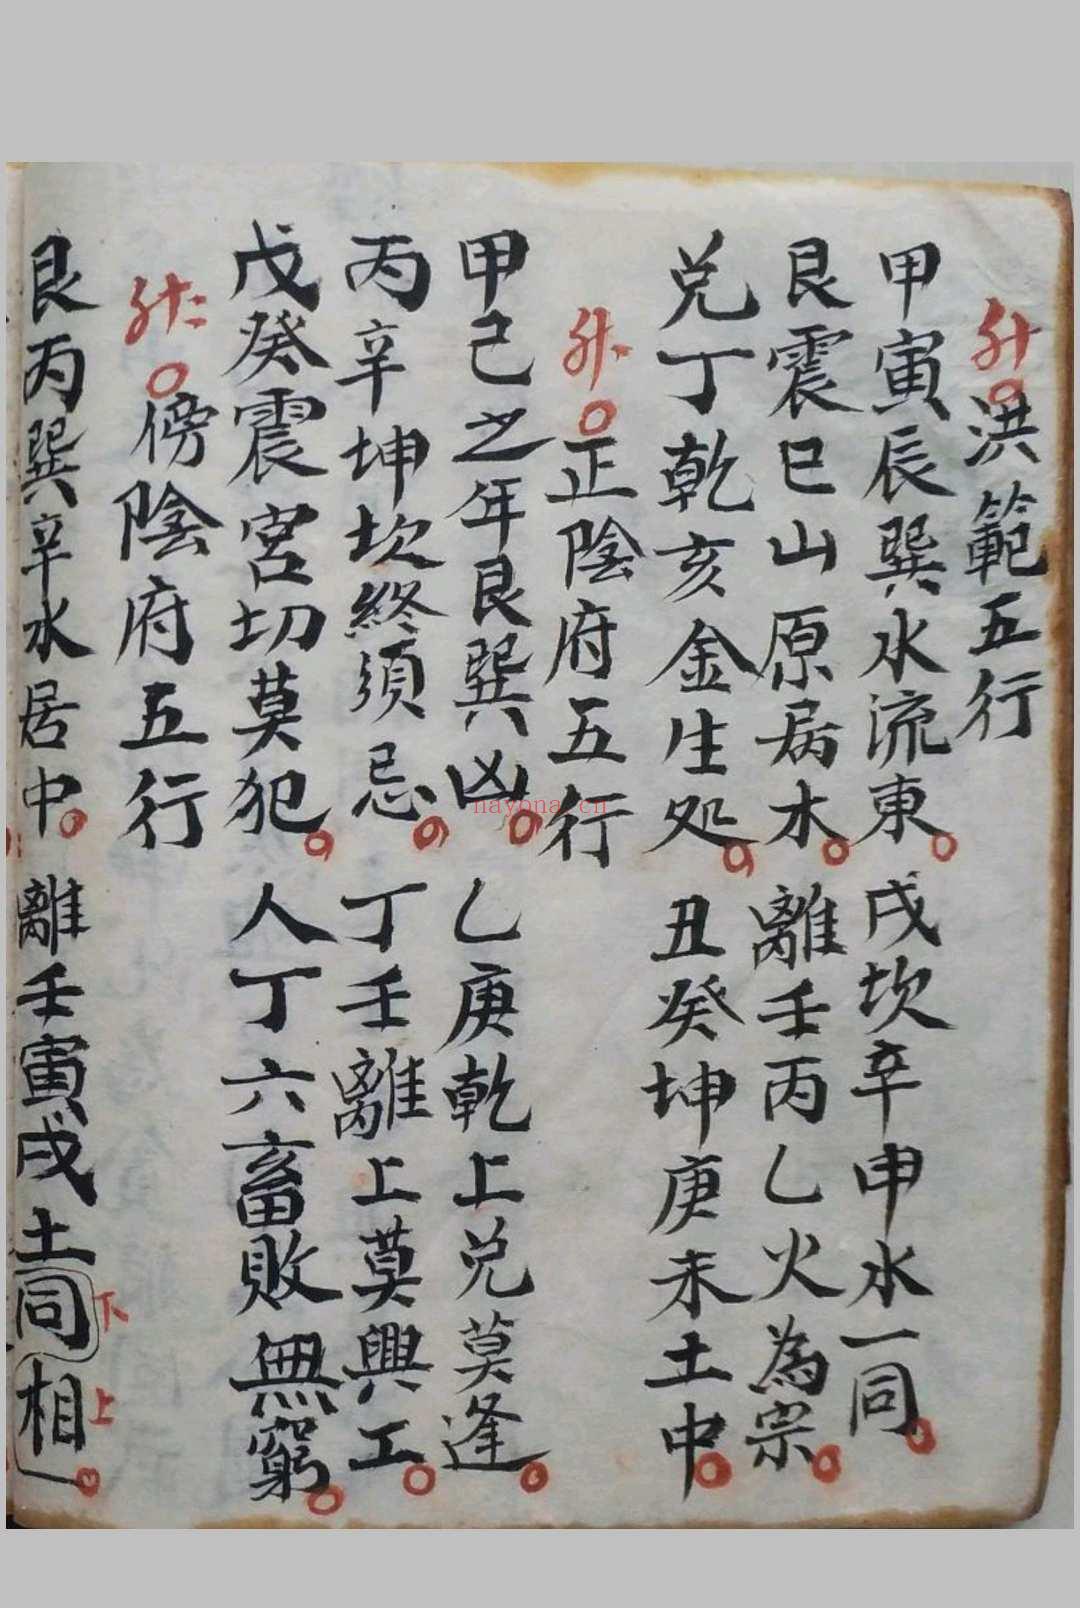 洪範五行
甲寅辰巽水流東。戌坎辛申水一同。
艮震巳山原居木。離壬丙乙火為宗。
兑丁乾亥金生処。丑癸坤庚未土中。
〇正陰府五行
甲己之年艮巽凶。乙庚乾上兑莫逢。
丙辛坤坎終須忌。丁壬離上莫興工。
戊癸震宮切莫犯。人丁六畜敗無窮。
〇傍陰府五行
艮丙巽辛水居中。離壬寅戌土同相。
下
上
nayona.cn